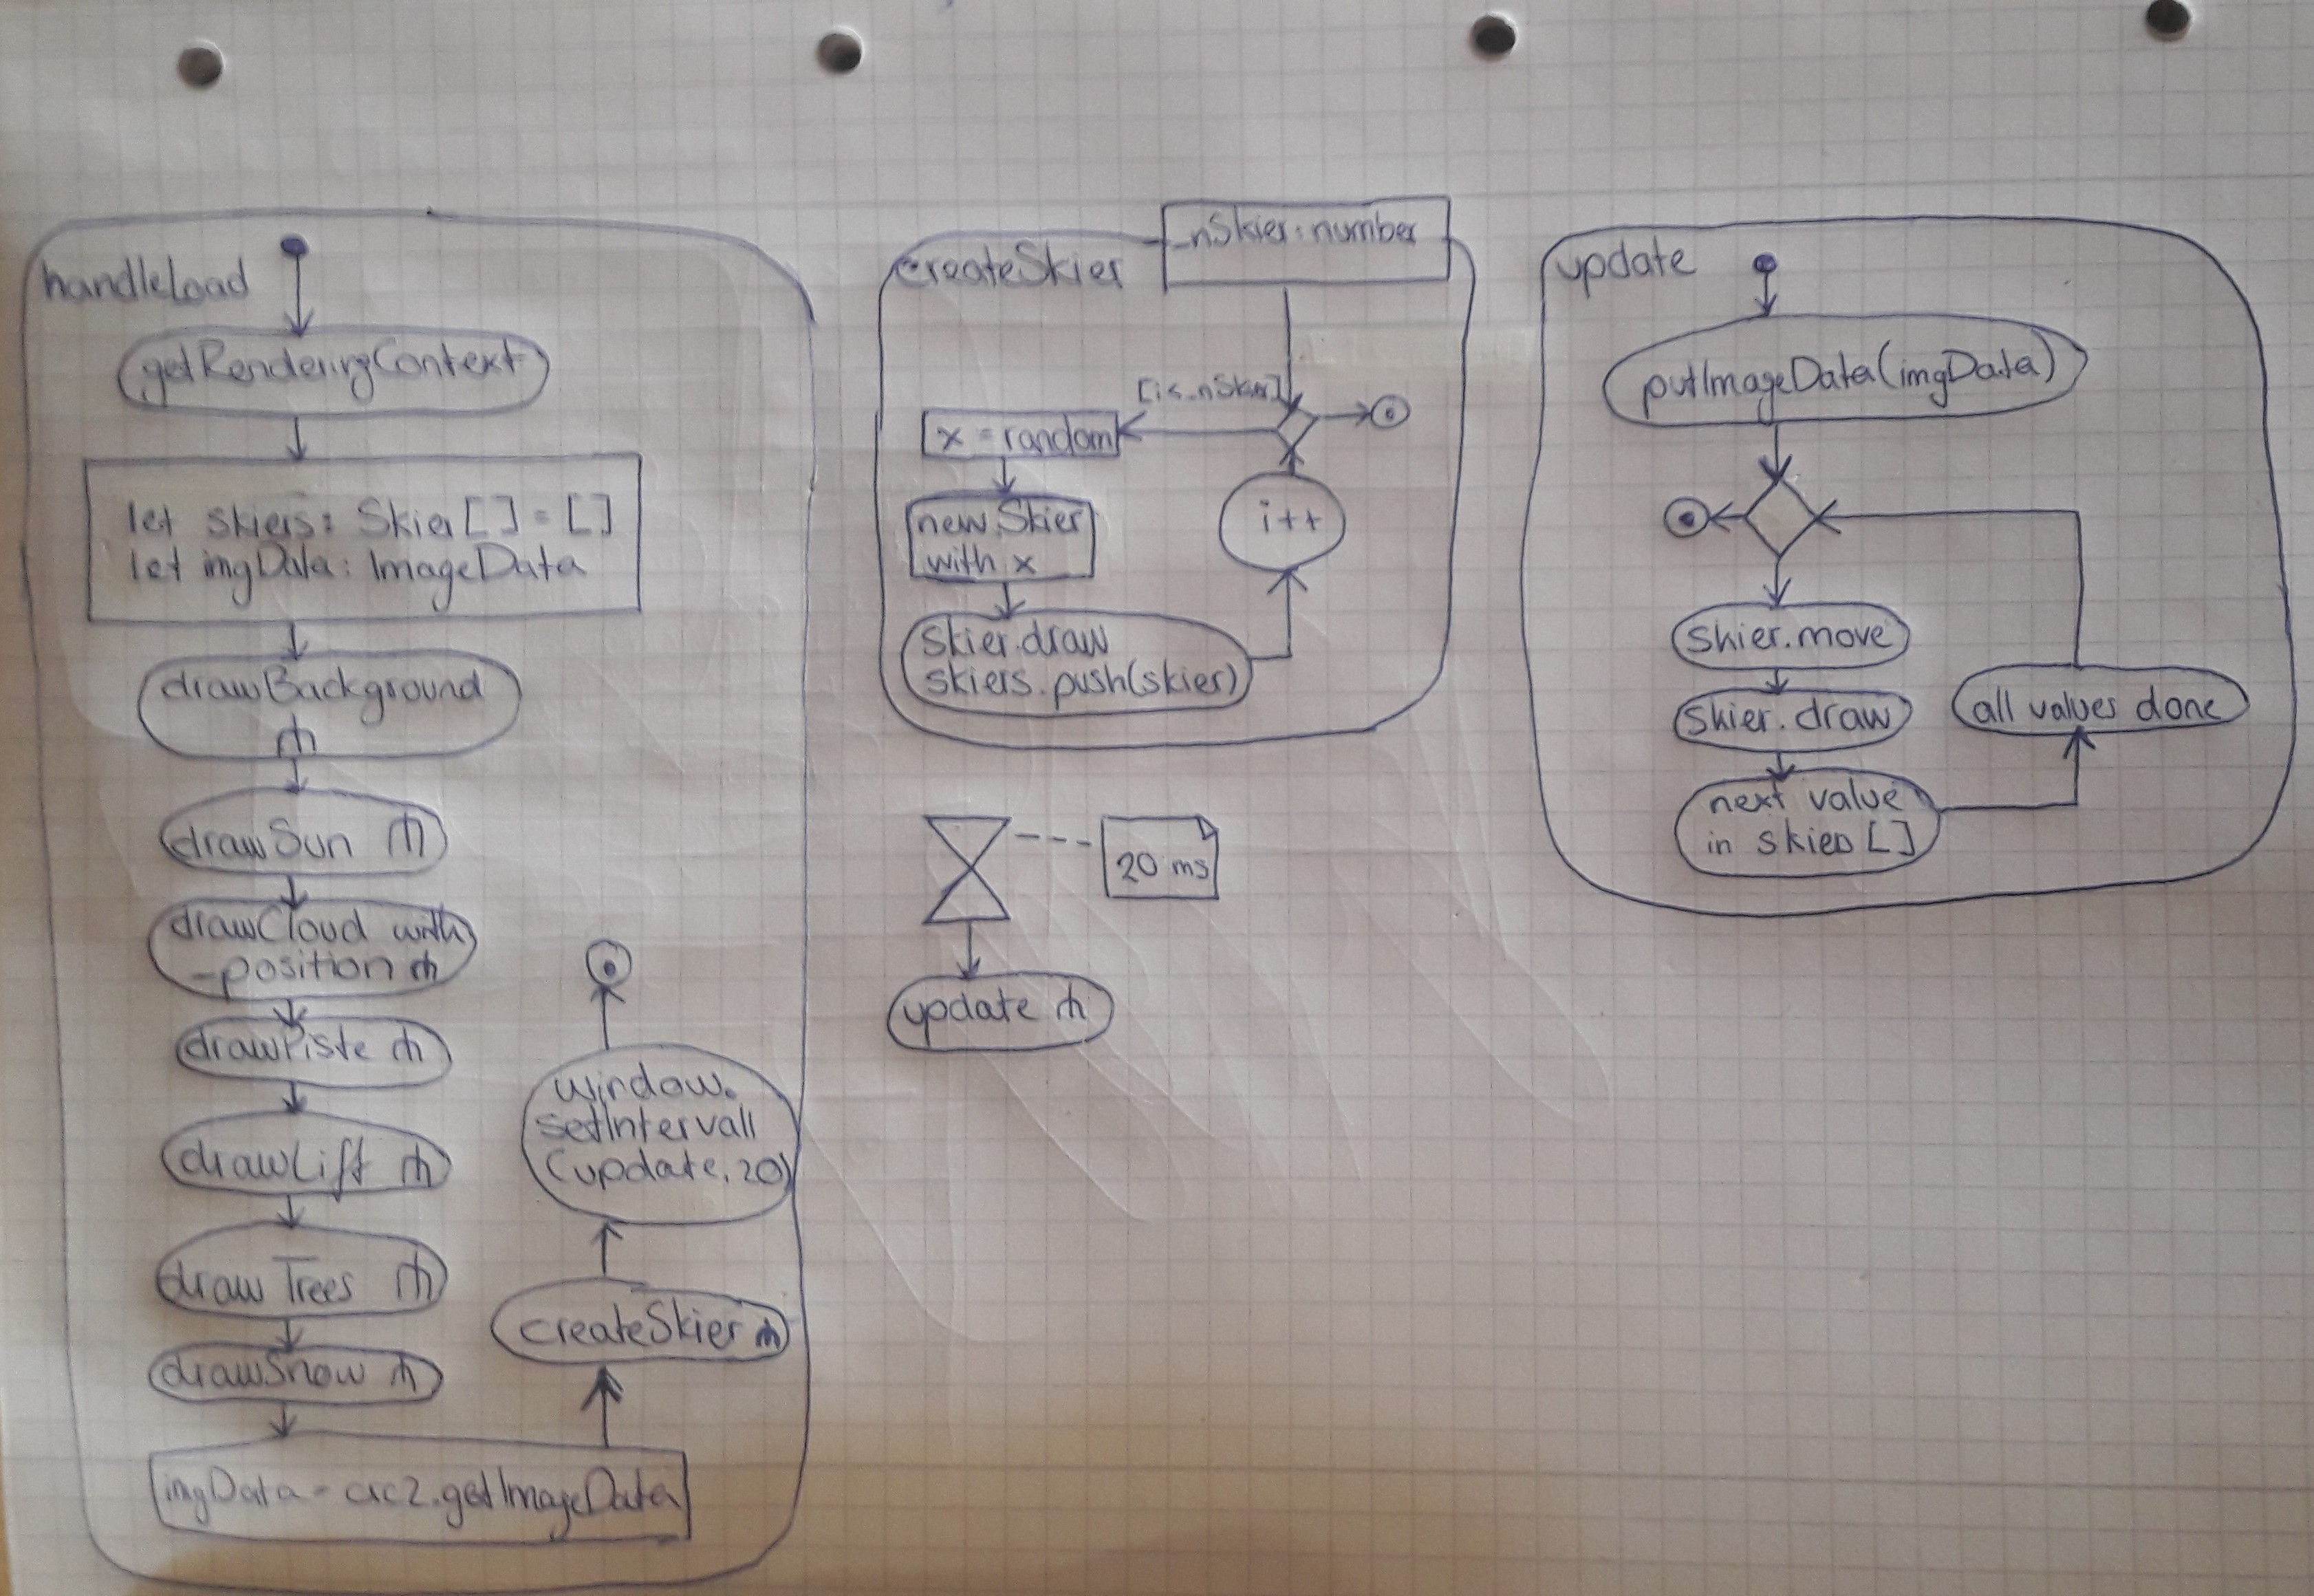 handleLoad
getRenderingContext
let skiers: Skier[] = []
let imgData: ImageData
drawBackground
drawSun
drawCloud with
_position
drawPiste
drawLift
draw Trees
drawSnow
imgData = crc2.getImageData
createSkier
window.
setIntervall
(update, 20)
createSkier
_nSkier: number
x = random
new Skier
with x
skier.draw
skiers.push(skier)
i++
20 ms
update
update
putImageData(imgData)
skier.move
skier.draw
next value
in skiers []
all values done